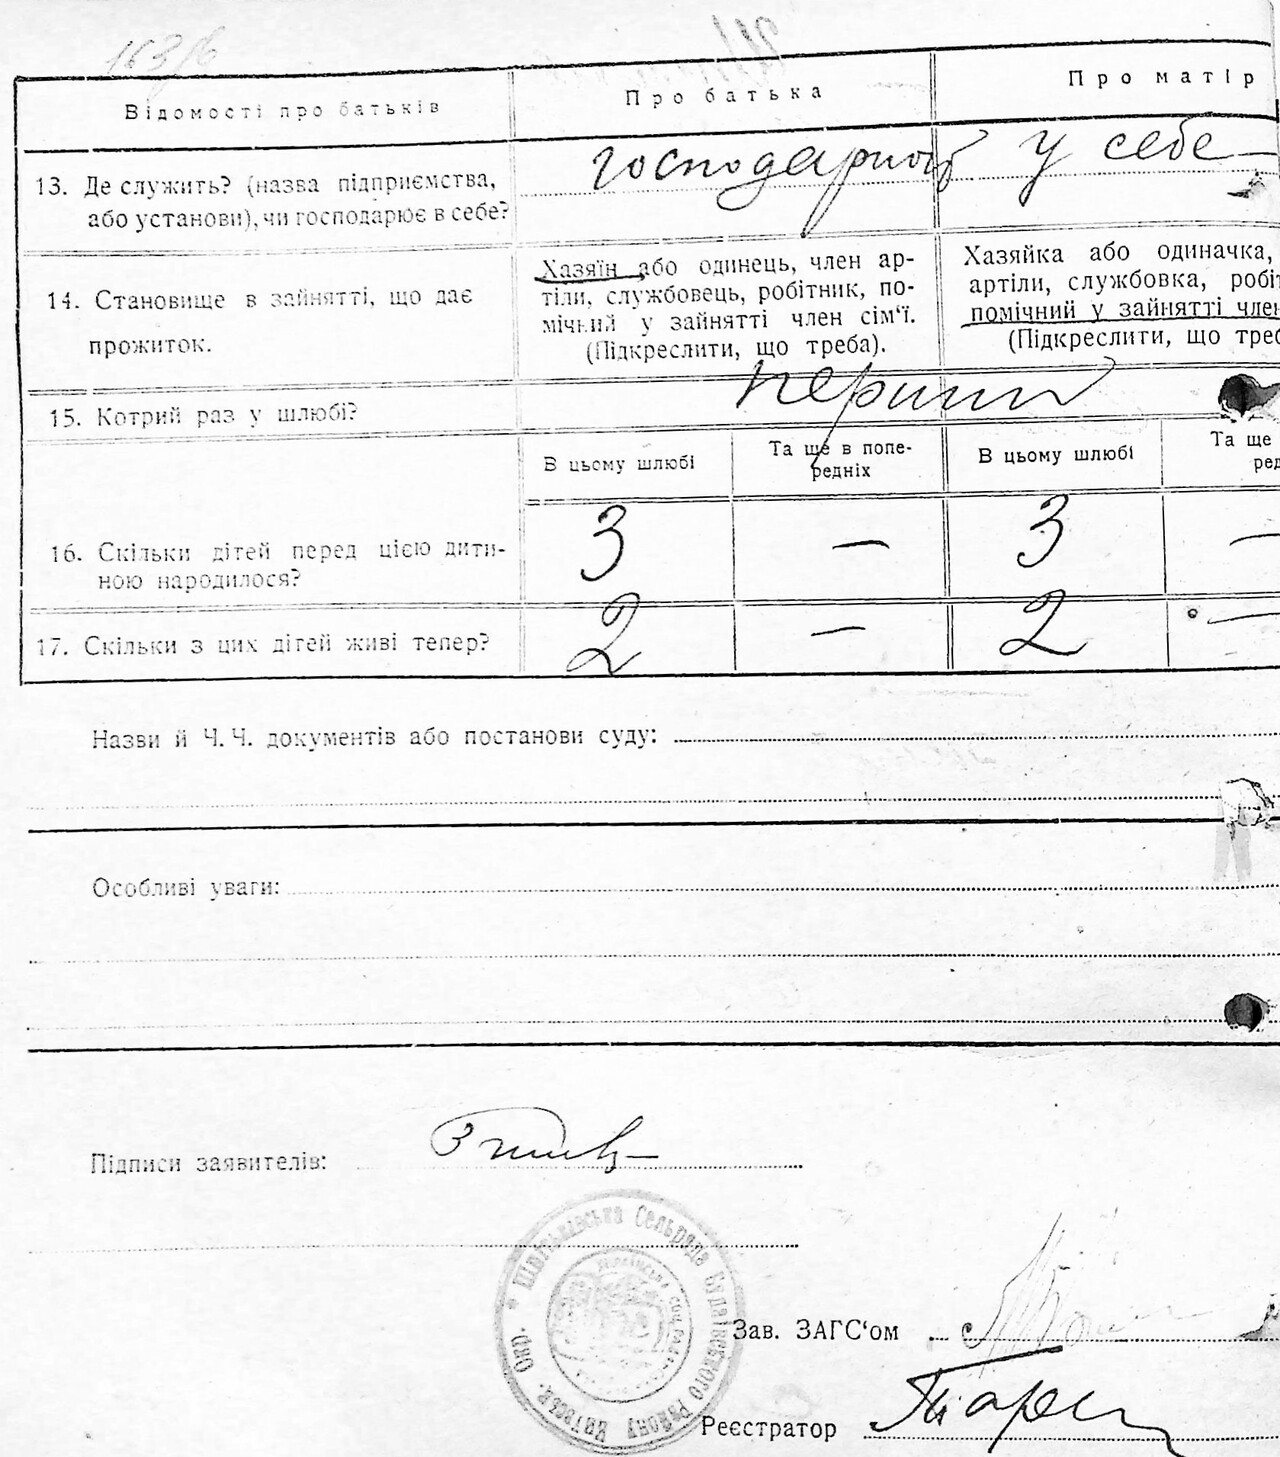 163/6
Відомості про батьків
Про батька
Про матір
13. Де служить? (назва підприємства,
або установи), чи господарює в себе?
у себе —
14. Становище в зайнятті, що дає
прожиток.
Хазяїн або одинець, член ар-
тіли, службовець, робітник, по-
мічний у зайнятті член сім'ї.
(Підкреслити, що треба).
Хазяйка або одиначка,
артіли, службовка, робіт
помічний у зайнятті член
(Підкреслити, що треб
15. Котрий раз у шлюбі?
перший
В цьому шлюбі
Та ще в попе-
редніх
В цьому шлюбі
Та ще
ред
16. Скільки дітей перед цією дити-
ною народилося?
3 — 3 —
17. Скільки з цих дітей живі тепер?
2 — 2 —
Назви й Ч. Ч. документів або постанови суду:
Особливі уваги:
Підписи заявителів:
Сельрада Будаївського Району
Зав. ЗАГС'ом
Реєстратор